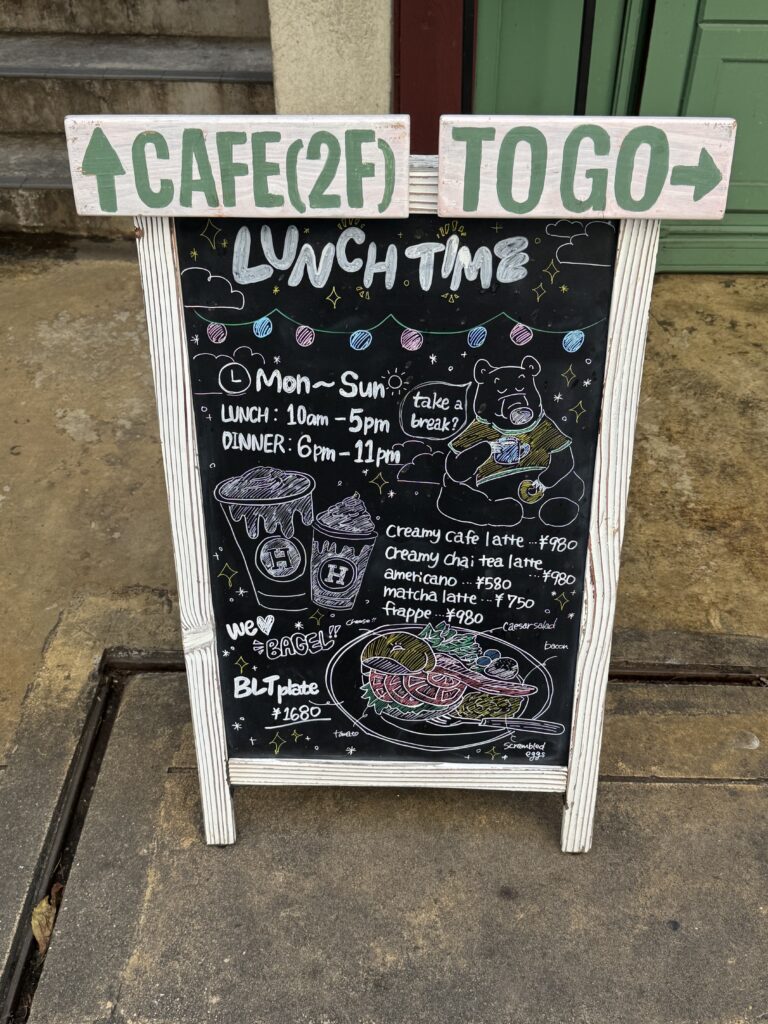 ↑CAFE(2F)
TO GO→
LUNCH TIME
Mon~Sun
LUNCH: 10am-5pm
DINNER: 6pm-11pm
take a
break?
H
H
Creamy cafe latte ...¥980
Creamy chai tea latte
...¥980
americano ...¥580
matcha latte ...¥750
frappe ...¥980
we♡
BAGEL!!
BLT plate
¥1680
cheese!!
caesar salad
bacon
tomato
scrambled
eggs